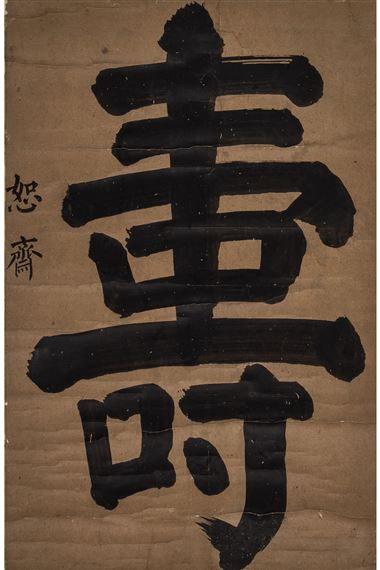 壽
恕齋